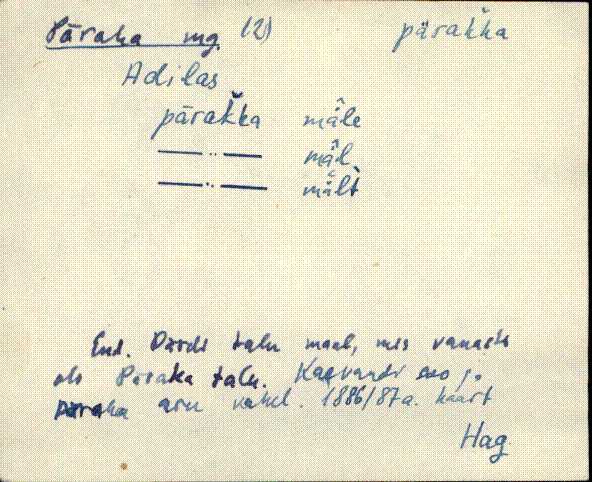 Päraka mg. 12) pärak̆ka
Adilas
pärak̆ka mäle
—..— mäl
—..— mält
End. Pärdi talu maal, mis vanasti
oli Päraka talu. Kaevandi soo j.
Päraka aru vahel. 1886/87 a. kaart
Hag